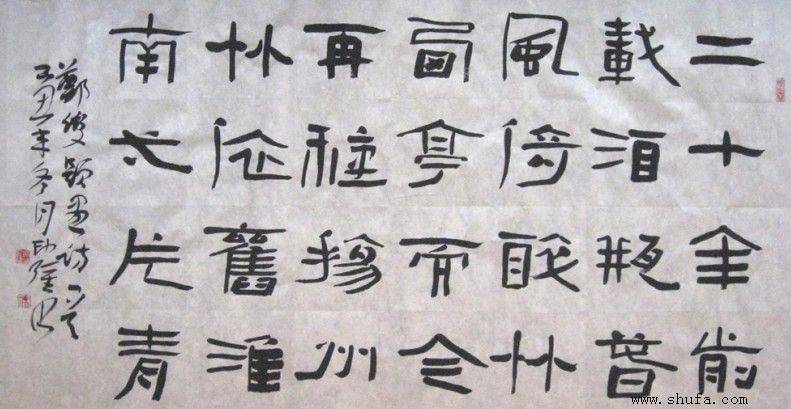 二十年前
載酒瓶春
風倚醉竹
西亭而今
再種揚州
竹依舊淮
南一片青
鄭燮題畫詩一首
年冬月
www.shufa.com